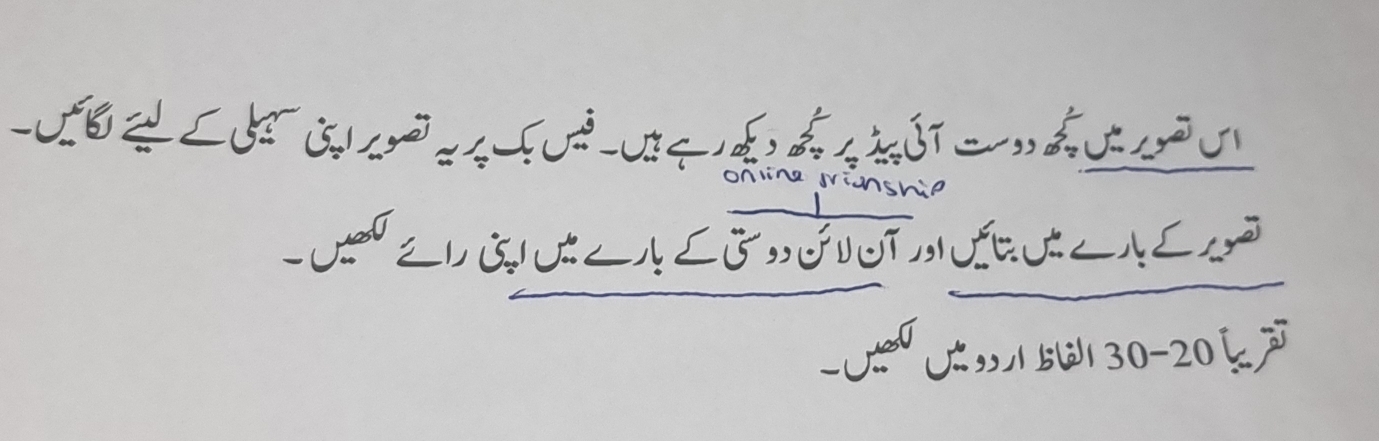 اس تصویر میں کُچھ دوست آئی پیڈ پر کُچھ دیکھ رہے ہیں۔ فیس بک پر یہ تصویر اپنی سہیلی کے لیئے لگائیں۔
online
تصویر کے بارے میں بتائیں اور آن لائن دوستی کے بارے میں اپنی رائے لکھیں۔
تقریباً 20-30 الفاظ اردو میں لکھیں۔